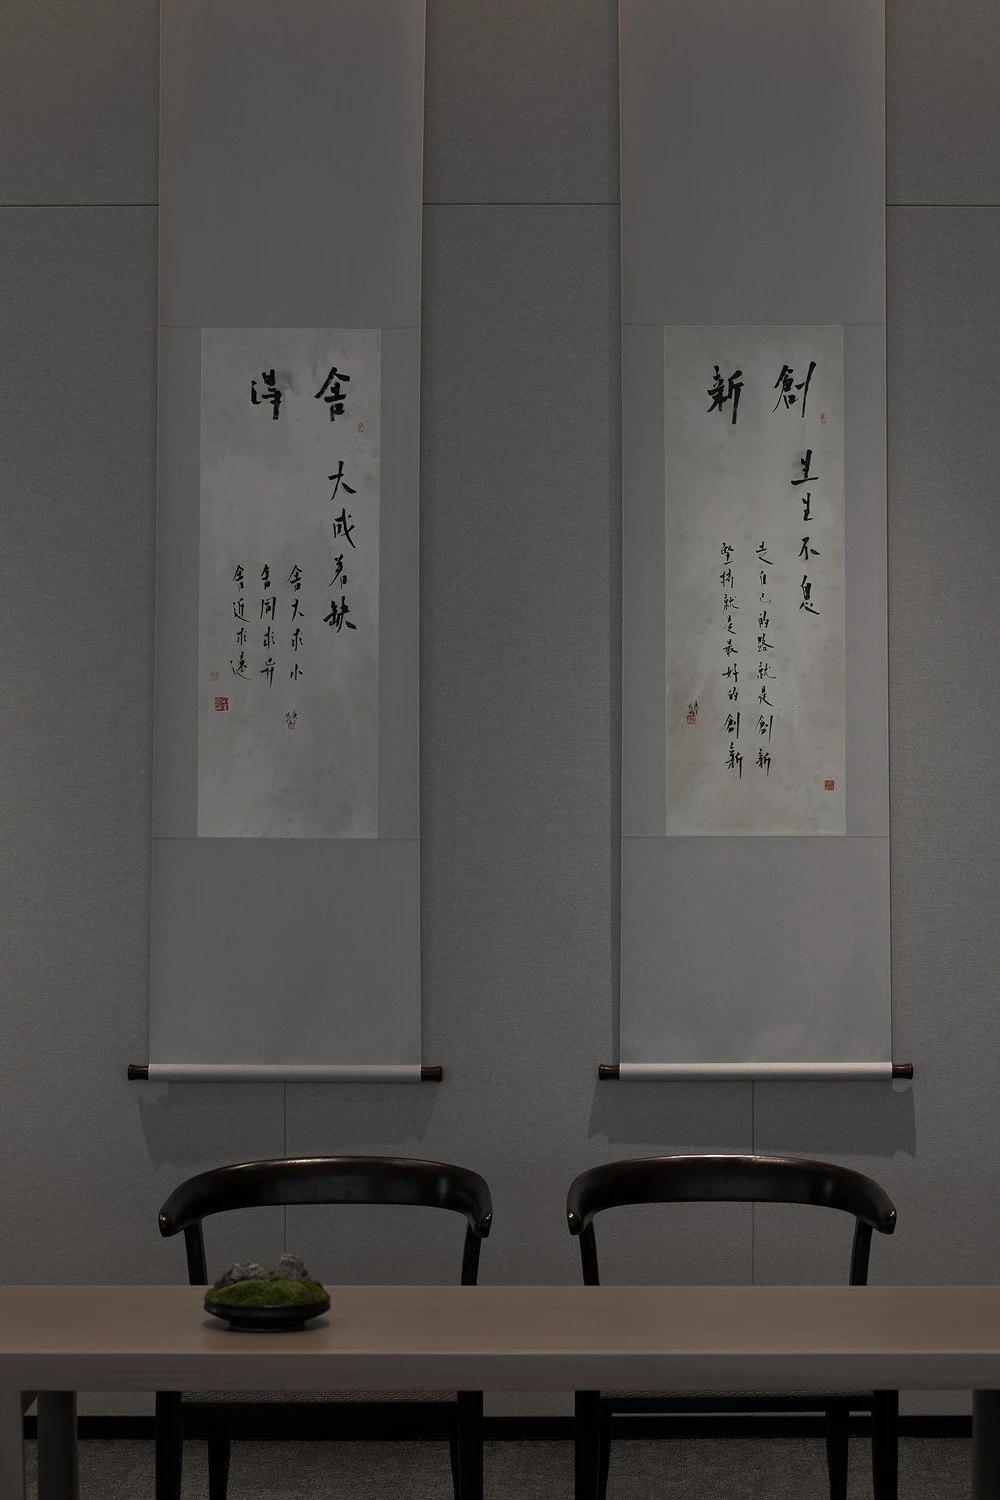 創新
生生不息
走自己的路就是創新
堅持就是最好的創新
舍得
大成若缺
舍大求小
舍同求异
舍近求遠